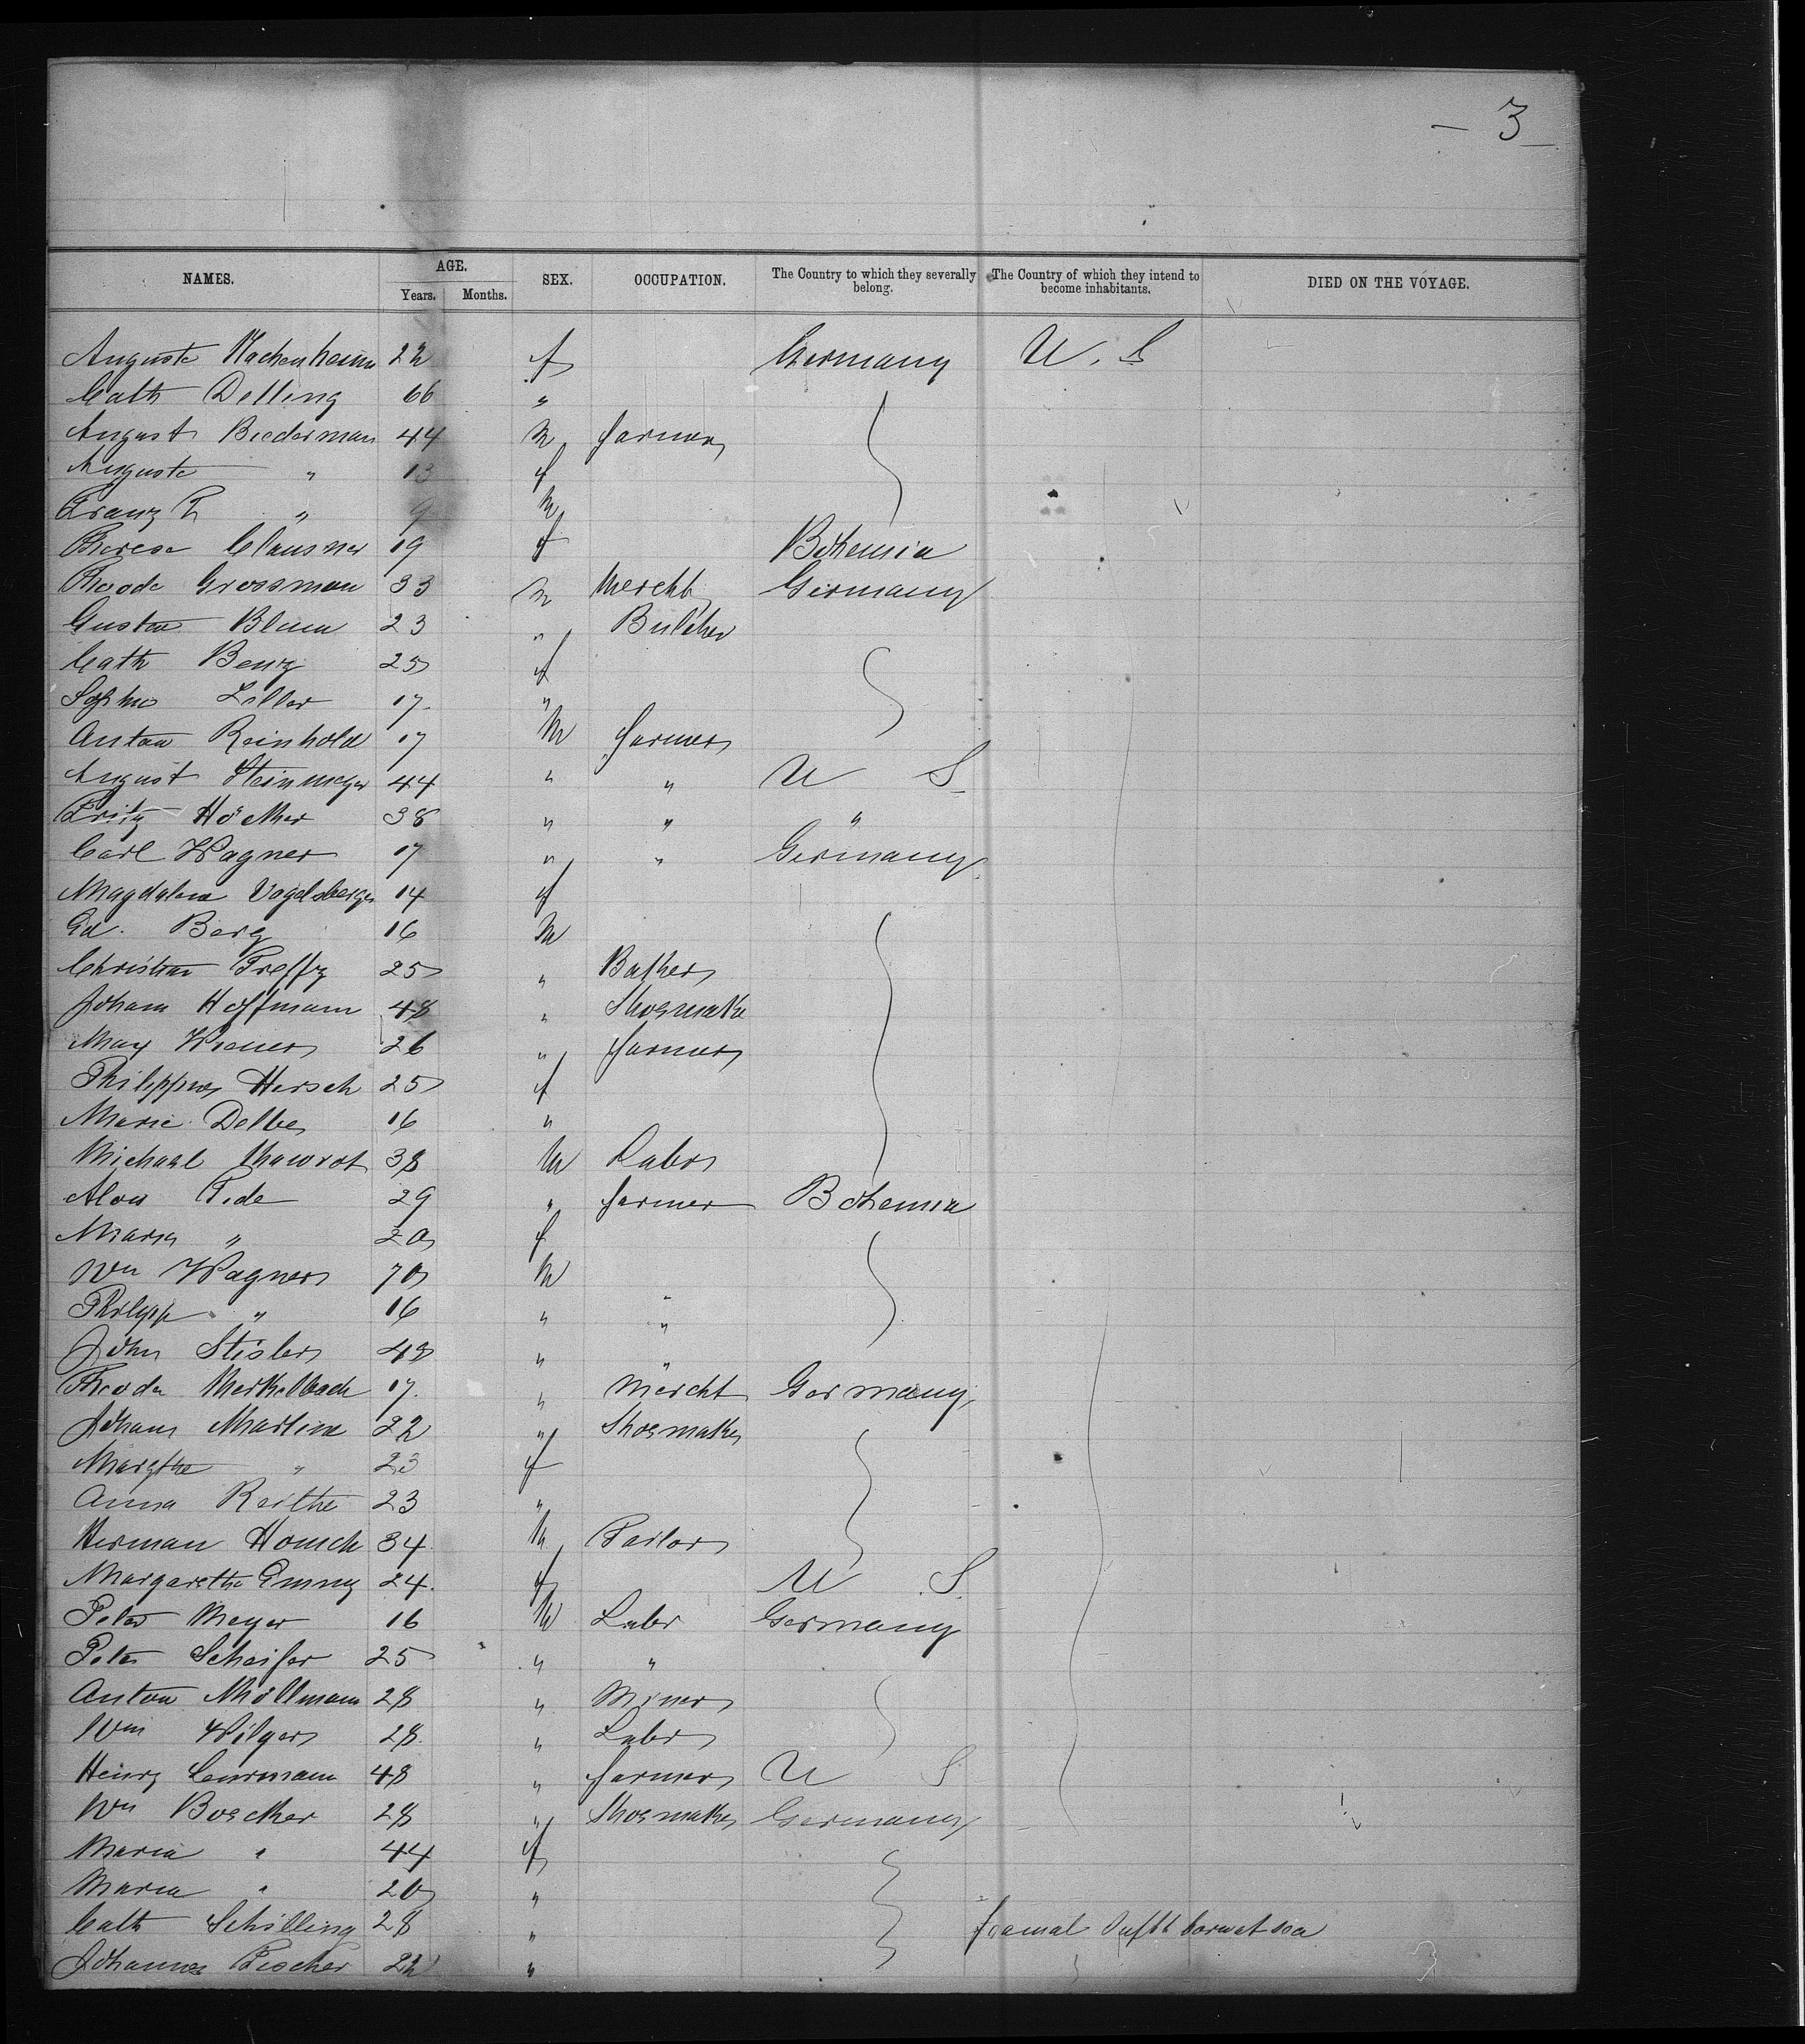 - 3
NAMES. AGE. Years. Months. SEX. OCCUPATION. The Country to which they severally belong. The Country of which they intend to become inhabitants. DIED ON THE VOYAGE.
Auguste Wachenheim 22 f Germany U. S
Cath Delling 66 "
August Biederman 44 m farmer
Auguste " 13 f
Franz " 9 m
Therese Clausner 19 f Bohemia
Theodr Grossman 33 m Mercht Germany
Gustav Blum 23 " Butcher
Cath Benz 25 f
Sophie Zeller 17 "
Anton Reinhold 17 m farmer
August Steinmeyer 44 " " U S
Fritz Höcker 38 " " "
Carl Wagner 17 " " Germany
Magdalena Vogelsberger 14 f
Ed. Berg 16 m
Christian Treffz 25 " Baker
Johann Hoffmann 48 " Shoemaker
Max Wiener 26 " farmer
Philippine Hirsch 25 f
Marie Delbe 16 "
Michael Mawrot 38 m Labr
Alois Pide 29 " farmer Bohemia
Maria " 20 f
Wm Wagner 70 m "
Philipp " 16 " "
John Stisler 48 " "
Theodr Merkelbach 17 " Mercht Germany
Johann Martini 22 " Shoemaker
Margthe " 23 f
Anna Reithe 23 "
Herman Honsch 34 m Tailor
Margarethe 24 f U S
Peter Meyer 16 m Labr Germany
Peter Scheifer 25 " "
Anton Möllmann 28 " Miner
Wm Hilger 28 " Labr
Henry Curmann 48 " farmer U S
Wm Boecker 28 " Shoemaker Germany
Maria " 44 f
Maria " 20 "
Cath Schilling 28 "
Johannes Fischer 22 " 3